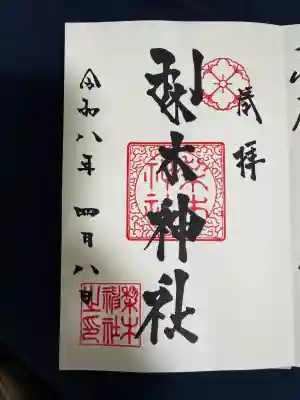 奉拝
梨木神社
梨木
神社
令和八年 四月八日
梨木
神社
之印